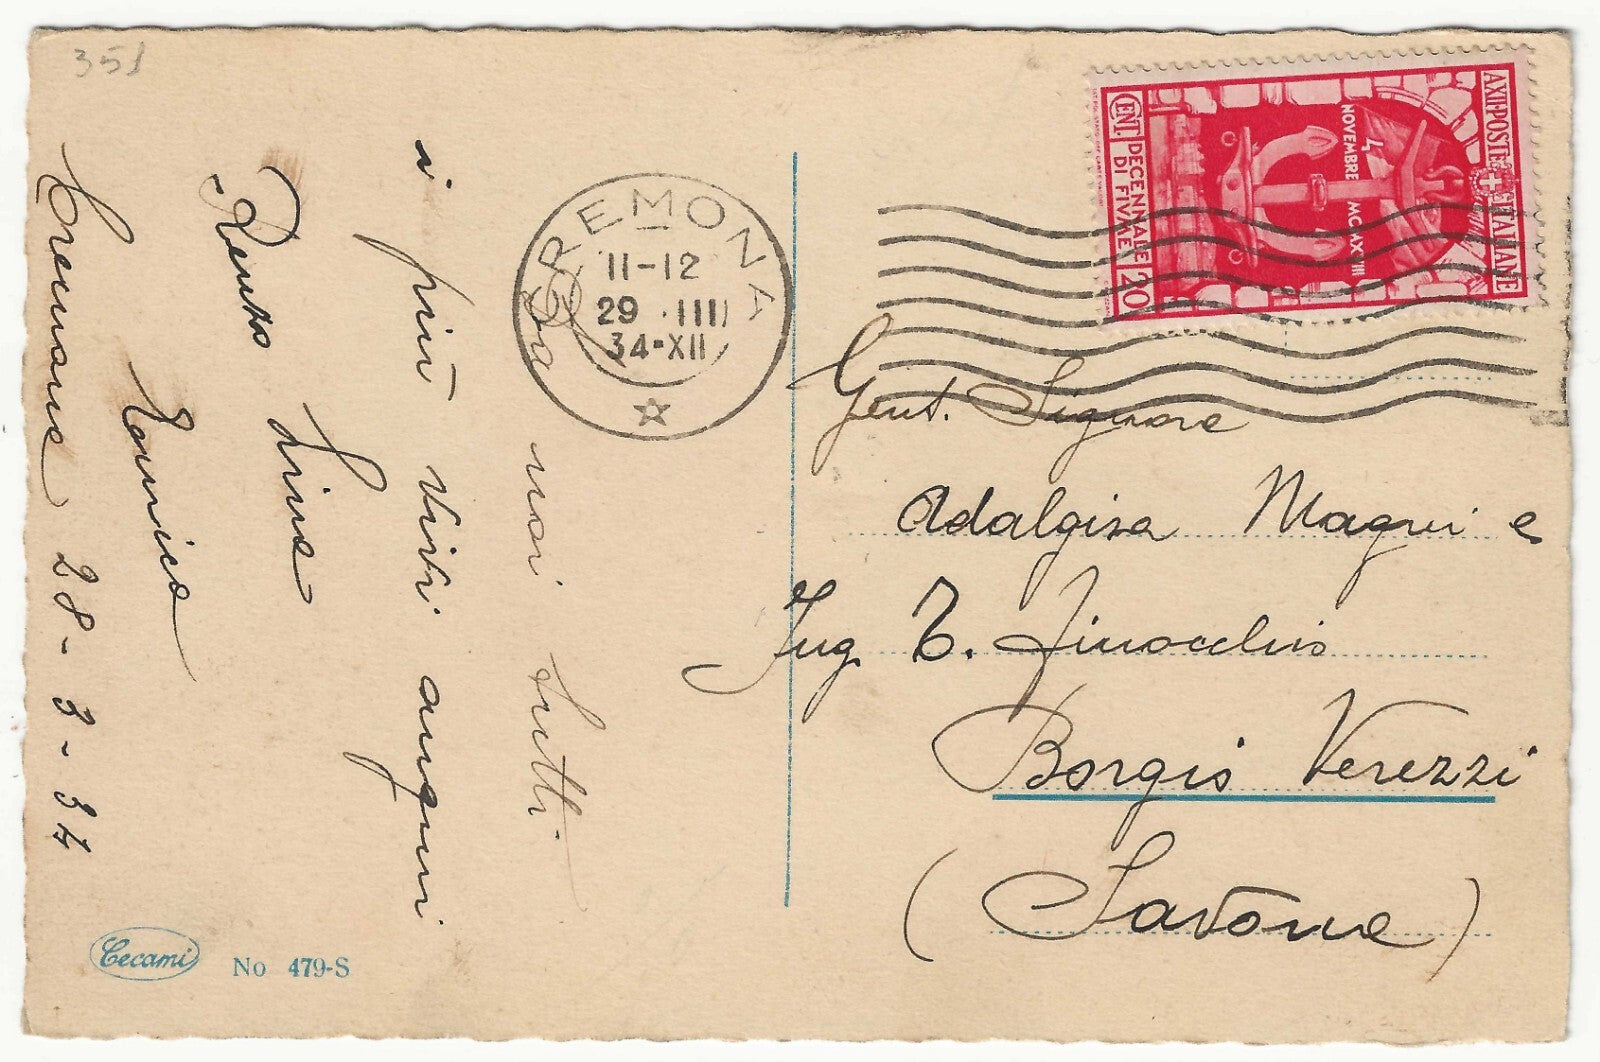 351
Da noi tutti
i più vivi auguri
Renato
Lina
Enrica
Cremona 28-3-34
Cecami
No 479-S
CREMONA
11-12
29 · III
34-XII
AXII·POSTE ITALIANE
4
NOVEMBRE MCMXXIIII
DECENNALE
DI FIVME
CENT. 20
Gent. Signora
Adalgisa Magni e
Ing. T. Finocchio
Borgio Verezzi
(Savona)